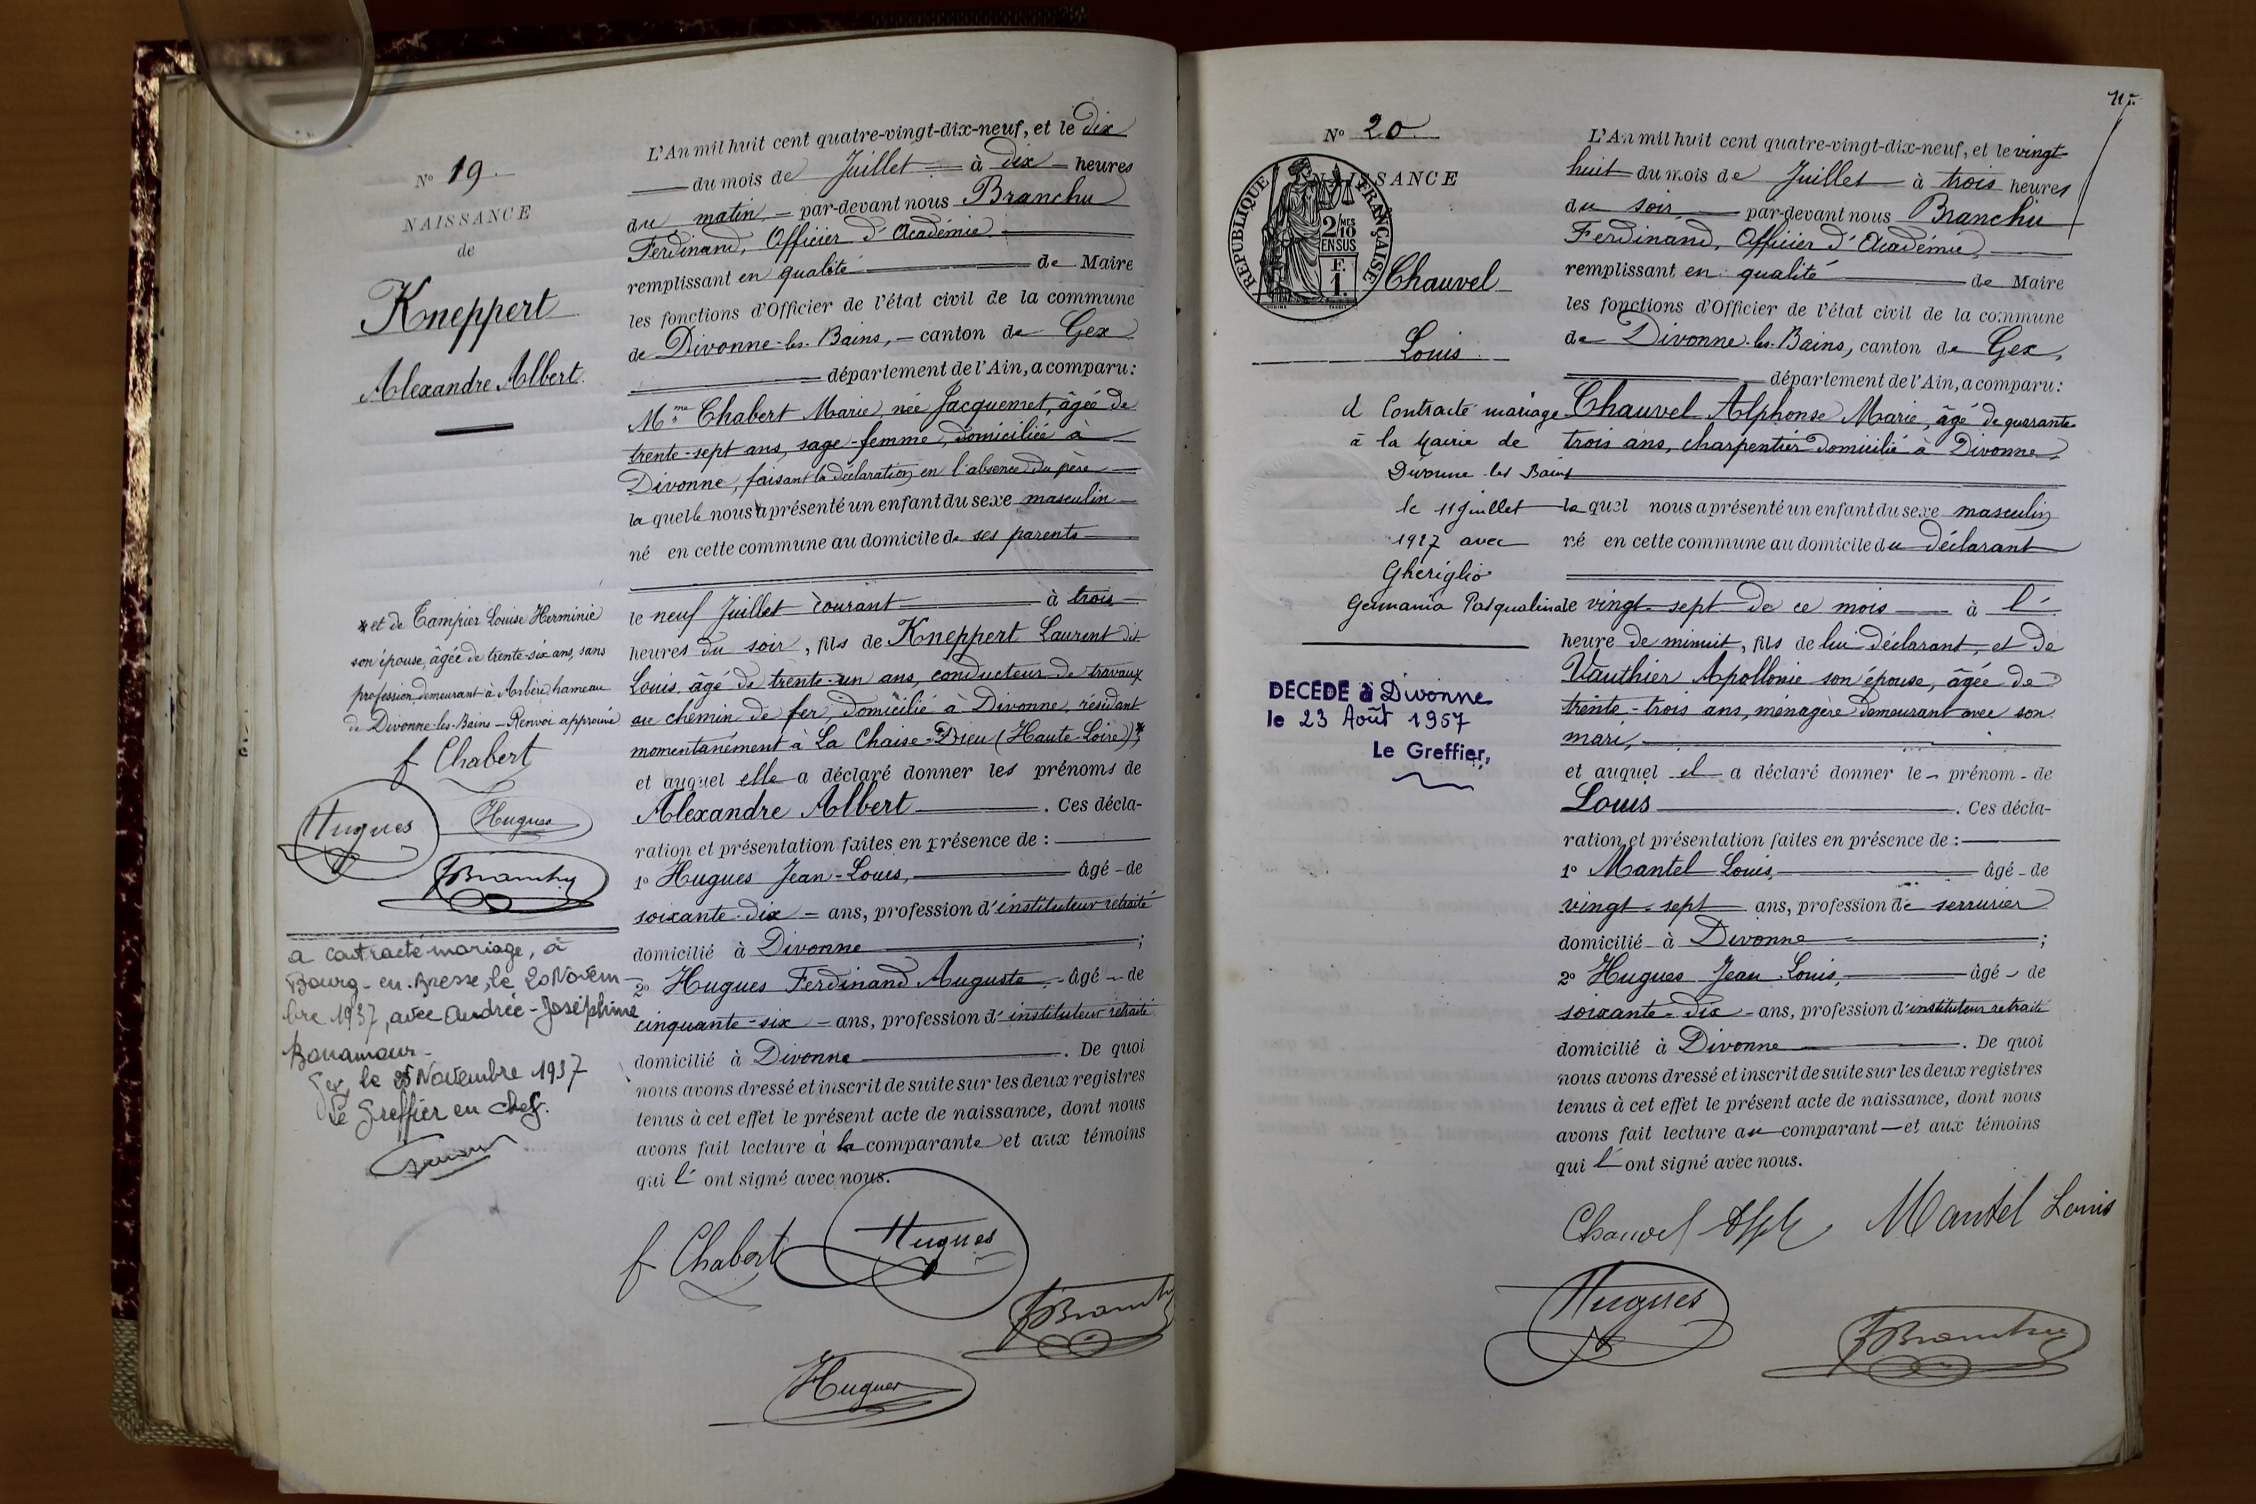 N° 19.
NAISSANCE
de
Kneppert
Alexandre Albert.
L'An mil huit cent quatre-vingt-dix-neuf, et le dix
du mois de Juillet à dix heures
du matin par-devant nous Branchu
Ferdinand, Officier d'Académie
remplissant en qualité de Maire
les fonctions d'Officier de l'état civil de la commune
de Divonne-les-Bains, canton de Gex
département de l'Ain, a comparu:
Mme Chabert Marie, née Jacquemet, âgée de
trente-sept ans, sage-femme, domiciliée à
Divonne, faisant la déclaration en l'absence du père
la quelle nous a présenté un enfant du sexe masculin
né en cette commune au domicile de ses parents
le neuf Juillet courant à trois
heures du soir, fils de Kneppert Laurent dit
Louis, âgé de trente-un ans, conducteur de travaux
au chemin de fer, domicilié à Divonne, résidant
momentanément à La Chaise-Dieu (Haute-Loire)*,
et auquel elle a déclaré donner les prénoms de
Alexandre Albert. Ces décla-
ration et présentation faites en présence de :
1° Hugues Jean-Louis, âgé de
soixante-dix ans, profession d'instituteur retraité
domicilié à Divonne ;
2° Hugues Ferdinand Auguste âgé de
cinquante-six ans, profession d'instituteur retraité
domicilié à Divonne. De quoi
nous avons dressé et inscrit de suite sur les deux registres
tenus à cet effet le présent acte de naissance, dont nous
avons fait lecture à la comparante et aux témoins
qui l' ont signé avec nous.
f Chabert
Hugues
FBranchu
Hugues
*et de Tampier Louise Herminie
son épouse, âgée de trente-six ans, sans
profession demeurant à Arbère, hameau
de Divonne-les-Bains - Renvoi approuvé
f Chabert
Hugues
Hugues
FBranchu
a contracté mariage, à
Bourg-en-Bresse, le 20 Novem-
bre 1937, avec Andrée-Joséphine
Bonamour.
Gex, le 25 Novembre 1937
Le Greffier en chef.
N° 20
NAISSANCE
RÉPUBLIQUE FRANÇAISE
2/10 MES
EN SUS
F.
1.
Chauvel
Louis
L'An mil huit cent quatre-vingt-dix-neuf, et le vingt
huit du mois de Juillet à trois heures
du soir par-devant nous Branchu
Ferdinand, Officier d'Académie
remplissant en qualité de Maire
les fonctions d'Officier de l'état civil de la commune
de Divonne-les-Bains, canton de Gex,
département de l'Ain, a comparu:
Chauvel Alphonse Marie, âgé de quarante
trois ans, charpentier domicilié à Divonne,
le quel nous a présenté un enfant du sexe masculin
né en cette commune au domicile du déclarant
le vingt-sept de ce mois à l'
heure de minuit, fils de lui déclarant, et de
Vauthier Apollonie son épouse, âgée de
trente-trois ans, ménagère demeurant avec son
mari,
et auquel il a déclaré donner le prénom de
Louis. Ces décla-
ration et présentation faites en présence de :
1° Mantel Louis, âgé de
vingt-sept ans, profession de serrurier
domicilié à Divonne ;
2° Hugues Jean Louis, âgé de
soixante-dix ans, profession d'instituteur retraité
domicilié à Divonne. De quoi
nous avons dressé et inscrit de suite sur les deux registres
tenus à cet effet le présent acte de naissance, dont nous
avons fait lecture au comparant et aux témoins
qui l' ont signé avec nous.
Chauvel Alph
Mantel Louis
Hugues
FBranchu
A Contracté mariage
à la Mairie de
Divonne les Bains
le 11 Juillet
1927 avec
Gheriglio
Germania Pasqualina
DECEDE à Divonne
le 23 Août 1957
Le Greffier,